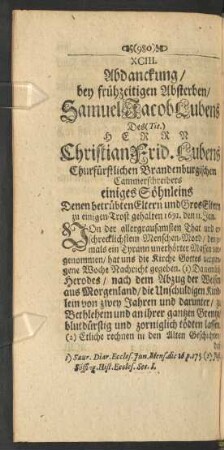 (980)
XCIII.
Abdanckung /
bey frühzeitigen Absterben /
Samuel Jacob Lubens
Des (Tit.)
HERRN
Christian Frid. Lubens
Churfürstlichen Brandenburgischen
Cammerschreibers
einiges Söhnleins
Denen betrübten Eltern und Gros Eltern
zu einigen Trost gehalten 1692. den 11. Jan.
VOn der allergrausamsten That und er-
schrecklichsten Menschen-Mord / den je-
mals ein Tyrann unerhörter Massen vor-
genommen / hat uns die Kirche Gottes vergan-
gene Woche Nachricht gegeben. (1) Da nemlich
Herodes / nach dem Abzug der Weisen
aus Morgenland / die Unschuldigen Kind-
lein von zwey Jahren und darunter / zu
Bethlehem und an ihrer gantzen Grentze
blutdürstig und zorniglich tödten lassen.
(2) Etliche rechnen in den Alten Geschichten
die
1) Saur. Diar. Eccles. Jan. Mens. die